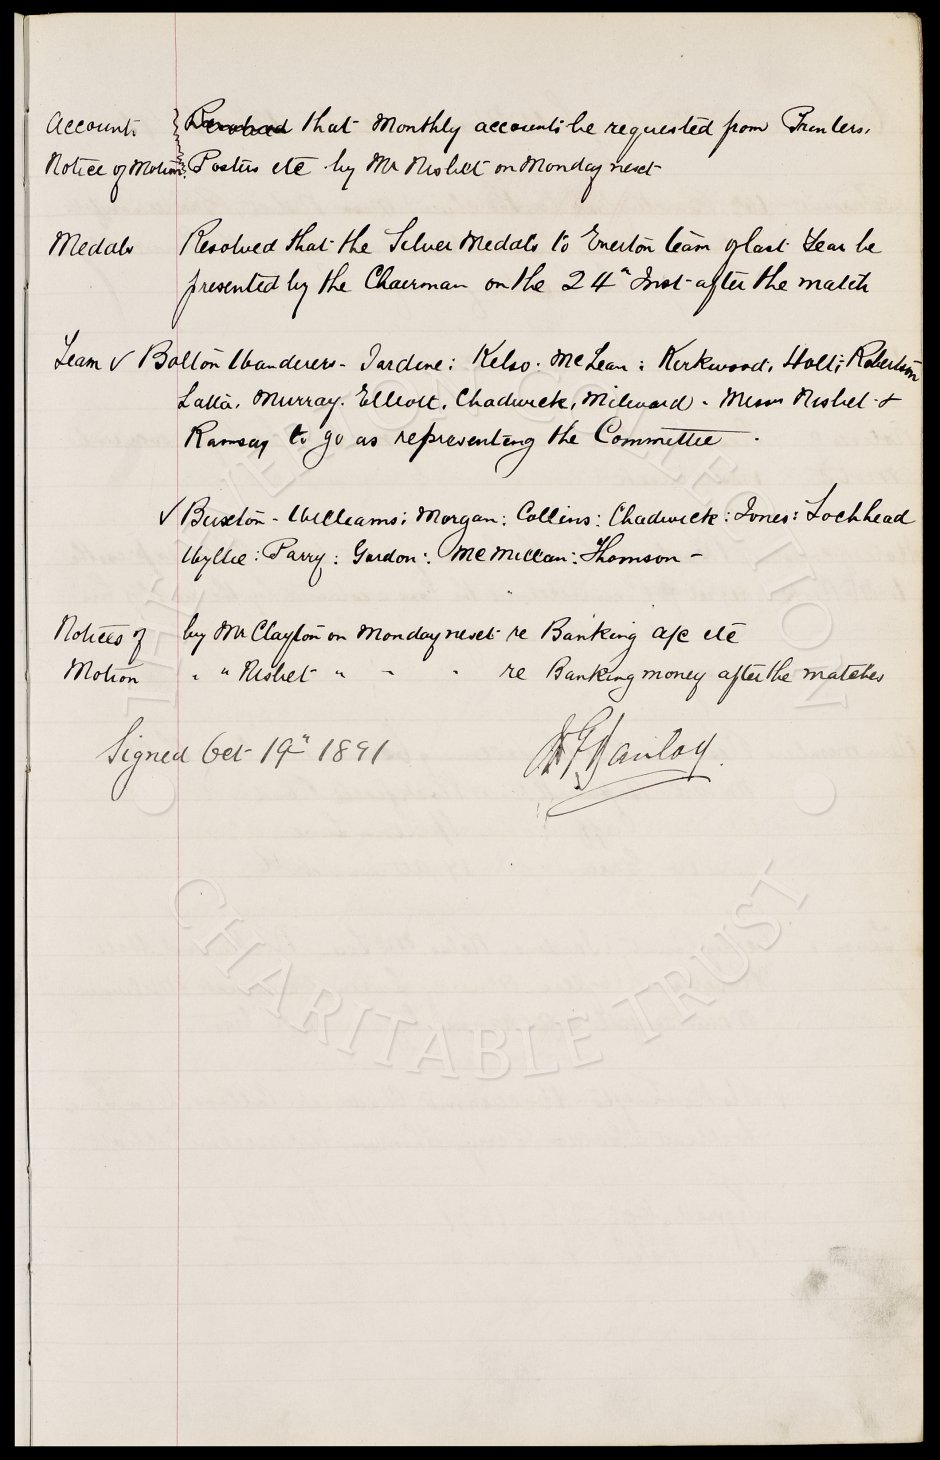 Accounts Resolved that Monthly accounts be requested from Printers,
Notice of Motion Posters etc by Mr Nisbet on Monday next
Medals Resolved that the Silver Medals to Everton team of last Year be
presented by the Chairman on the 24" Inst after the match
Team v Bolton Wanderers - Jardine: Kelso. McLean: Kirkwood, Holt; Robertson
Latta, Murray. Elliott, Chadwick, Milward - Messrs Nisbet &
Ramsay to go as representing the Committee.
v Buxton - Williams: Morgan: Collins: Chadwick: Jones: Lochhead
Wyllie: Parry: Gordon: McMillan: Thomson -
Notices of by Mr Clayton on Monday next re Banking a/c etc
Motion " " Nisbet " - " re Banking money after the matches
Signed Oct 19" 1891
EVERTON COLLECTION
CHARITABLE TRUST